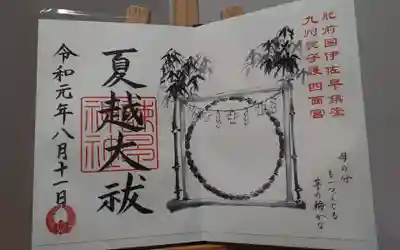 肥前国伊佐早鎮守
九州総守護四面宮
母の分
も一つくぐる
茅の輪かな
夏越大祓
令和元年八月十一日